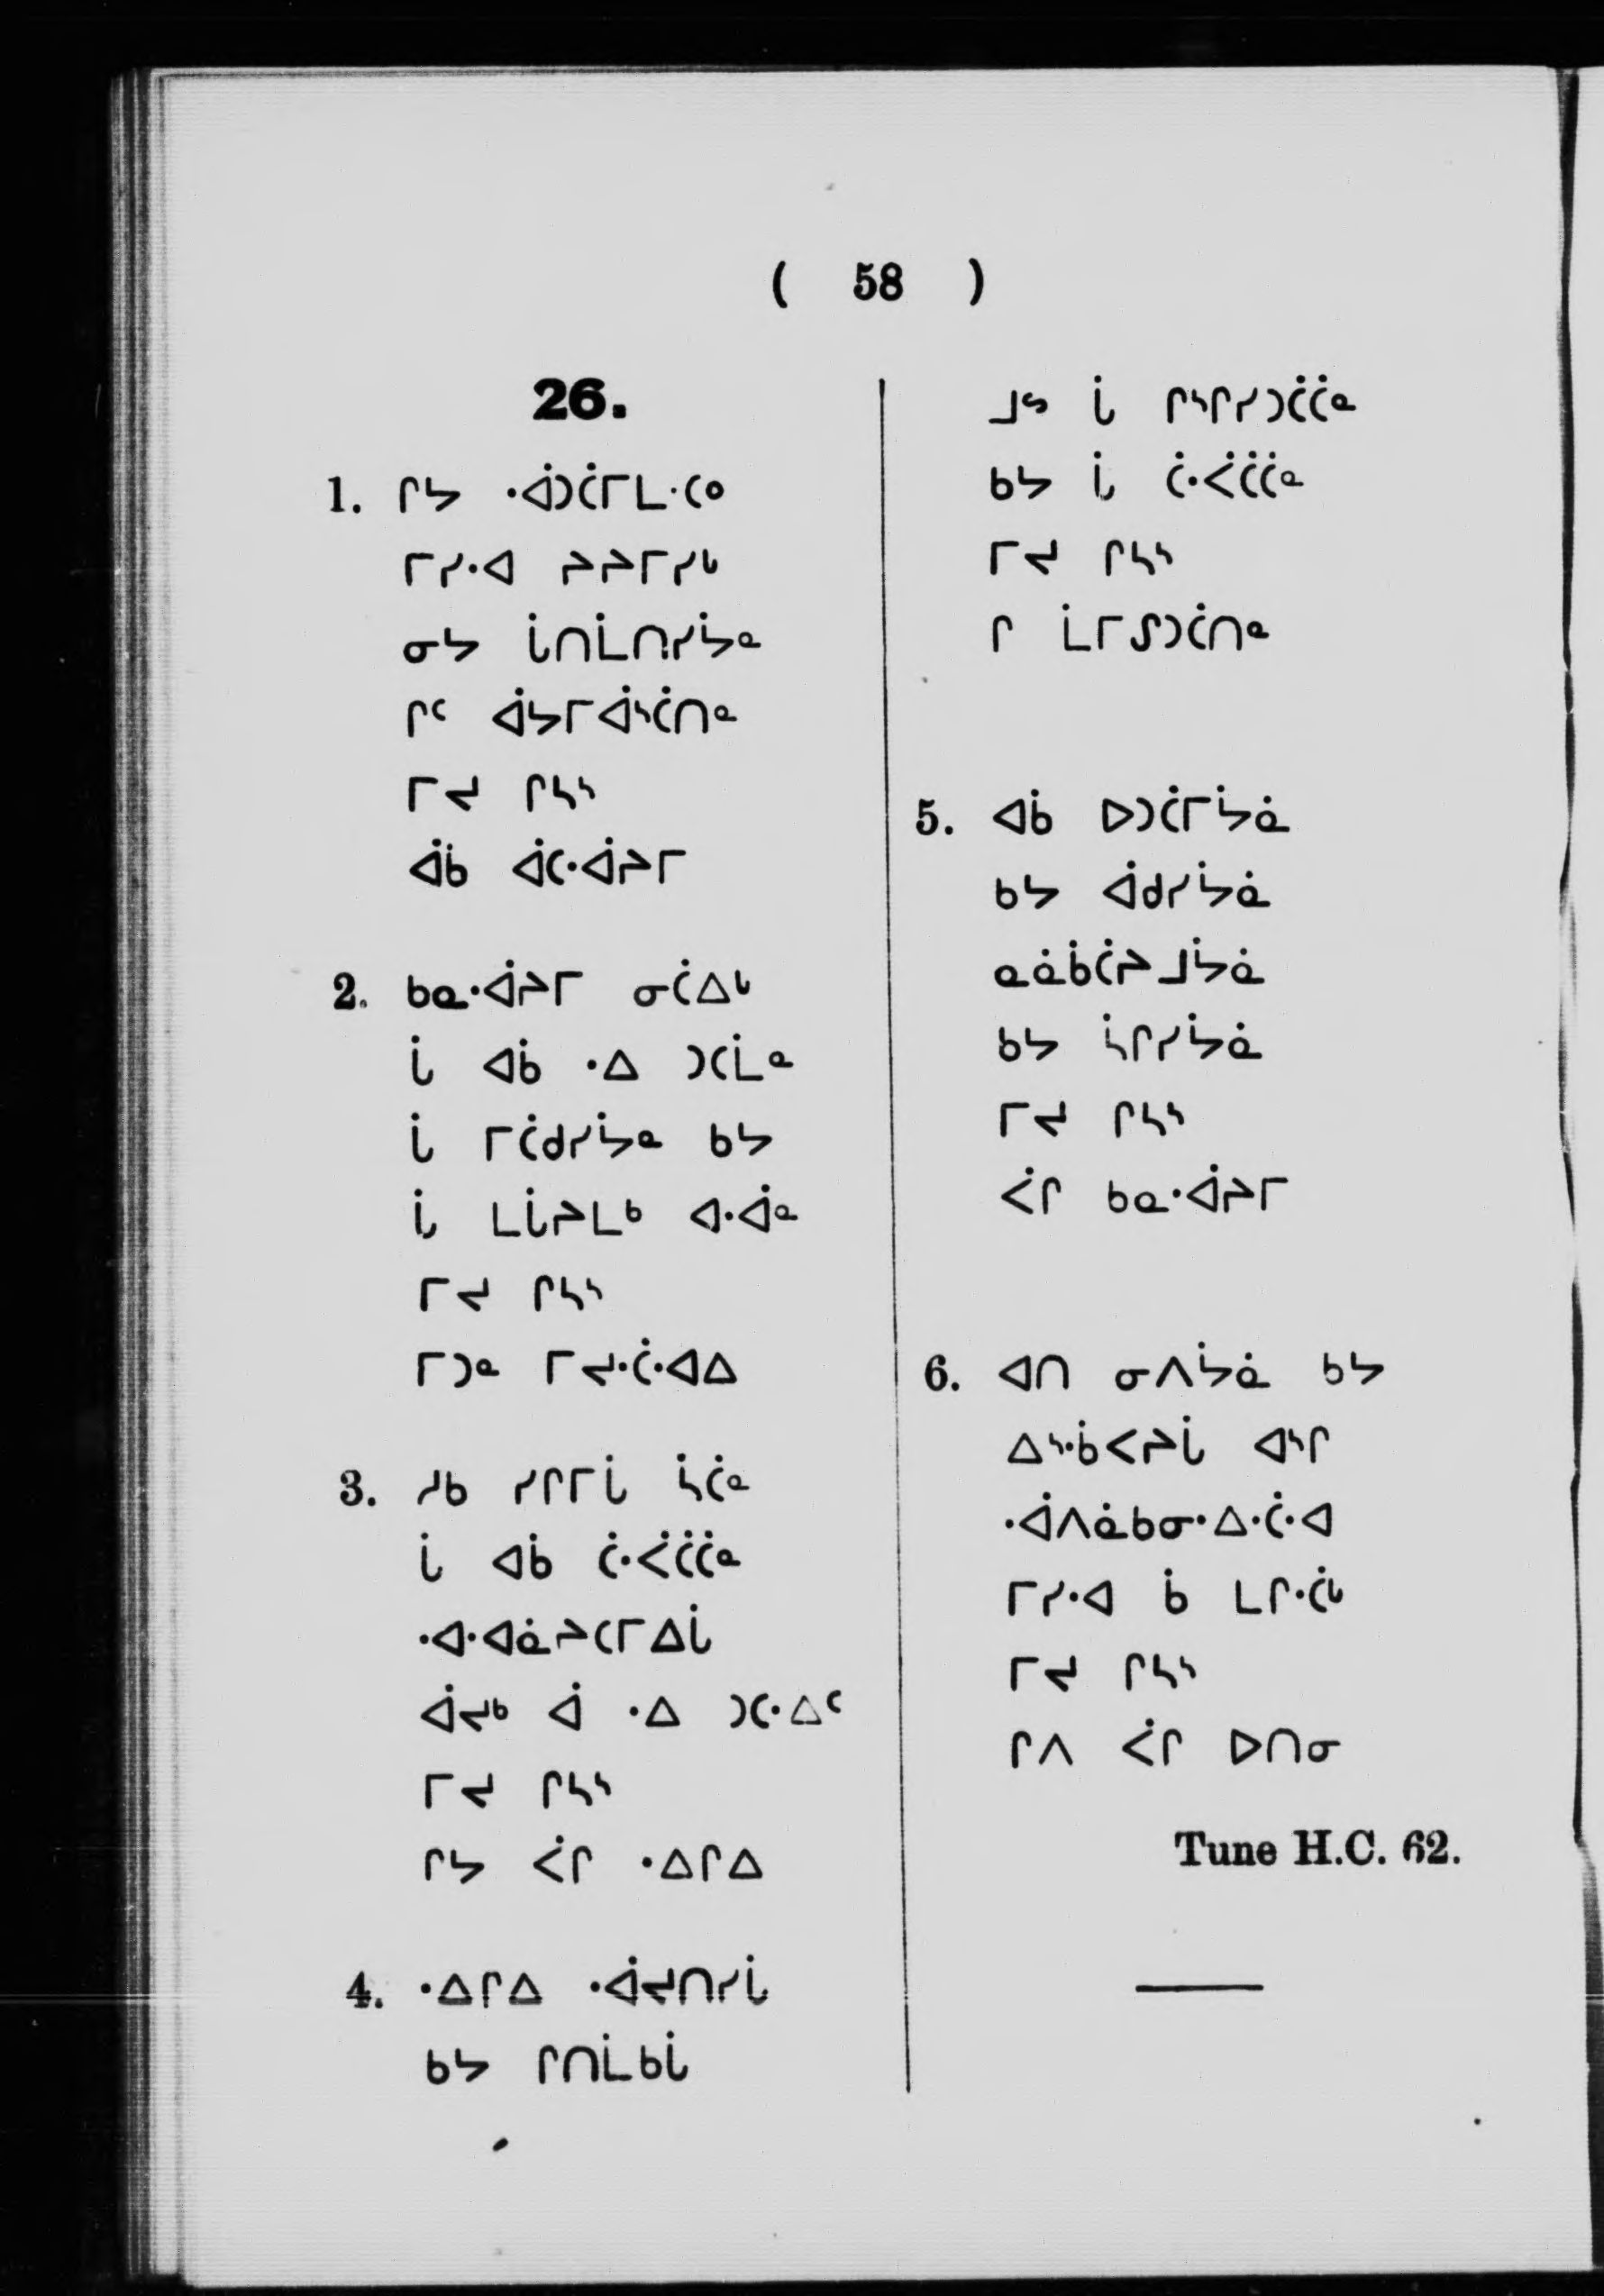 ( 58 )
26.
1. ᒋᔭ ᐧᐋᑐᑖᒥᒪᐧᑕᐤ
ᒥᓯᐧᐊ ᔨᔨᒥᓯᒡ
ᓂᔭ ᒑᑎᒫᑎᓯᔮᓐ
ᒋᑦ ᐋᔭᒥᐋᔅᑖᑎᓐ
ᒥᔪ ᒋᓴᔅ
ᐋᑳ ᐋᑕᐧᐋᔨᒥ
2. ᑲᓇᐧᐋᔨᒥ ᓂᑖᐃᒡ
ᒑ ᐊᑳ ᐧᐃ ᑐᑕᒫᓐ
ᒑ ᒥᑖᑯᓯᔮᓐ ᑲᔭ
ᒑ ᒪᒑᔨᒪᒃ ᐊᐧᐋᓐ
ᒥᔪ ᒋᓴᔅ
ᒥᑐᓐ ᒥᔪᐧᑖᐧᐊᐃ
3. ᓱᑲ ᓯᒋᒥᒑ ᓵᑖᓐ
ᒑ ᐊᑳ ᑖᐧᐹᑖᑖᓐ
ᐧᐊᐧᐊᓈᔨᑕᒥᐃᒑ
ᐋᔪᒃ ᐋ ᐧᐃ ᑐᑕᐧᐃᑦ
ᒥᔪ ᒋᓴᔅ
ᒋᔭ ᐹᒋ ᐧᐃᒋᐃ
4. ᐧᐃᒋᐃ ᐧᐋᔪᑎᓯᒑ
ᑲᔭ ᒋᑎᒫᑲᒑ
ᒧᔥ ᒑ ᒋᔅᒋᓯᑐᑖᑖᓐ
ᑲᔭ ᒑ ᑖᐧᐹᑖᑖᓐ
ᒥᔪ ᒋᓴᔅ
ᒋ ᒫᒥᔑᑐᑖᑎᓐ
5. ᐊᑳ ᐅᑐᑖᒥᔮᓈ
ᑲᔭ ᐋᑯᓯᔮᓈ
ᓇᓈᑳᑖᔨᒧᔮᓈ
ᑲᔭ ᓵᒋᓯᔮᓈ
ᒥᔪ ᒋᓴᔅ
ᐹᒋ ᑲᓇᐧᐋᔨᒥ
6. ᐊᑎ ᓂᐱᔮᓈ ᑲᔭ
ᐃᔅᐧᑳᐸᔨᒑ ᐊᔅᒋ
ᐧᐋᐱᓈᑲᓂᐧᐃᐧᑖᐧᐊ
ᒥᓯᐧᐊ ᑳ ᒪᒋᐧᑖᒡ
ᒥᔪ ᒋᓴᔅ
ᒋᐱ ᐹᒋ ᐅᑎᓂ
Tune H.C. 62.